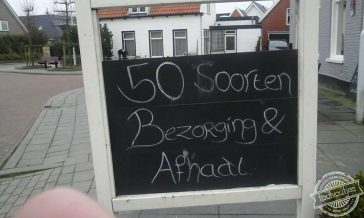 50 Soorten
Bezorging &
Afhaal.